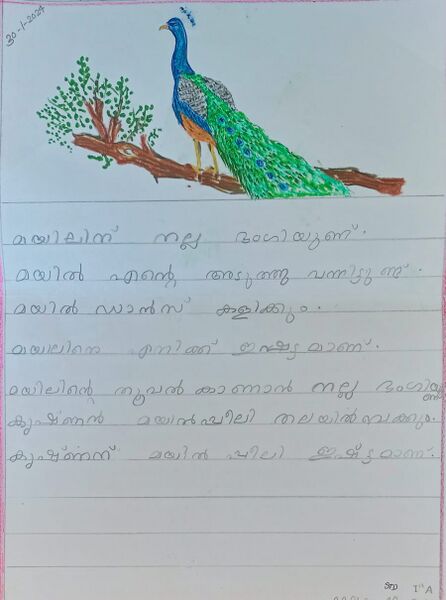 30-1-2024
മയിലിന് നല്ല ഭംഗിയുണ്ട്.
മയിൽ എന്റെ അടുത്തു വന്നിട്ടുണ്ട്.
മയിൽ ഡാൻസ് കളിക്കും.
മയിലിനെ എനിക്ക് ഇഷ്ടമാണ്.
മയിലിന്റെ തൂവൽ കാണാൻ നല്ല ഭംഗിയുണ്ട്
കൃഷ്ണൻ മയിൻപീലി തലയിൽ വെക്കും.
കൃഷ്ണന് മയിൻ പീലി ഇഷ്ടമാണ്.
STD I A